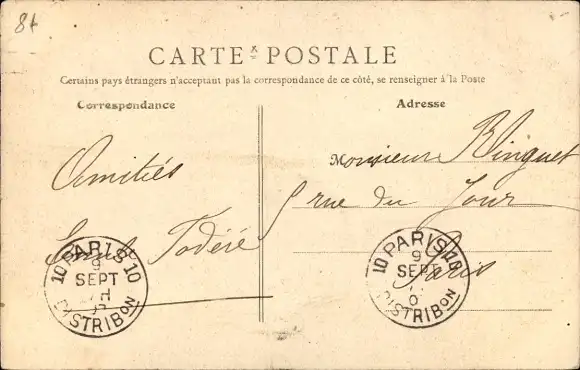 81
CARTE POSTALE
Certains pays étrangers n'acceptant pas la correspondance de ce côté, se renseigner à la Poste
Correspondance
Adresse
Amitiés
Todéré
Monsieur Blinguet
5 rue du Jour
Paris
10 PARIS 10
9
SEPT
DISTRIBON
10 PARIS 10
9
SEPT
DISTRIBON